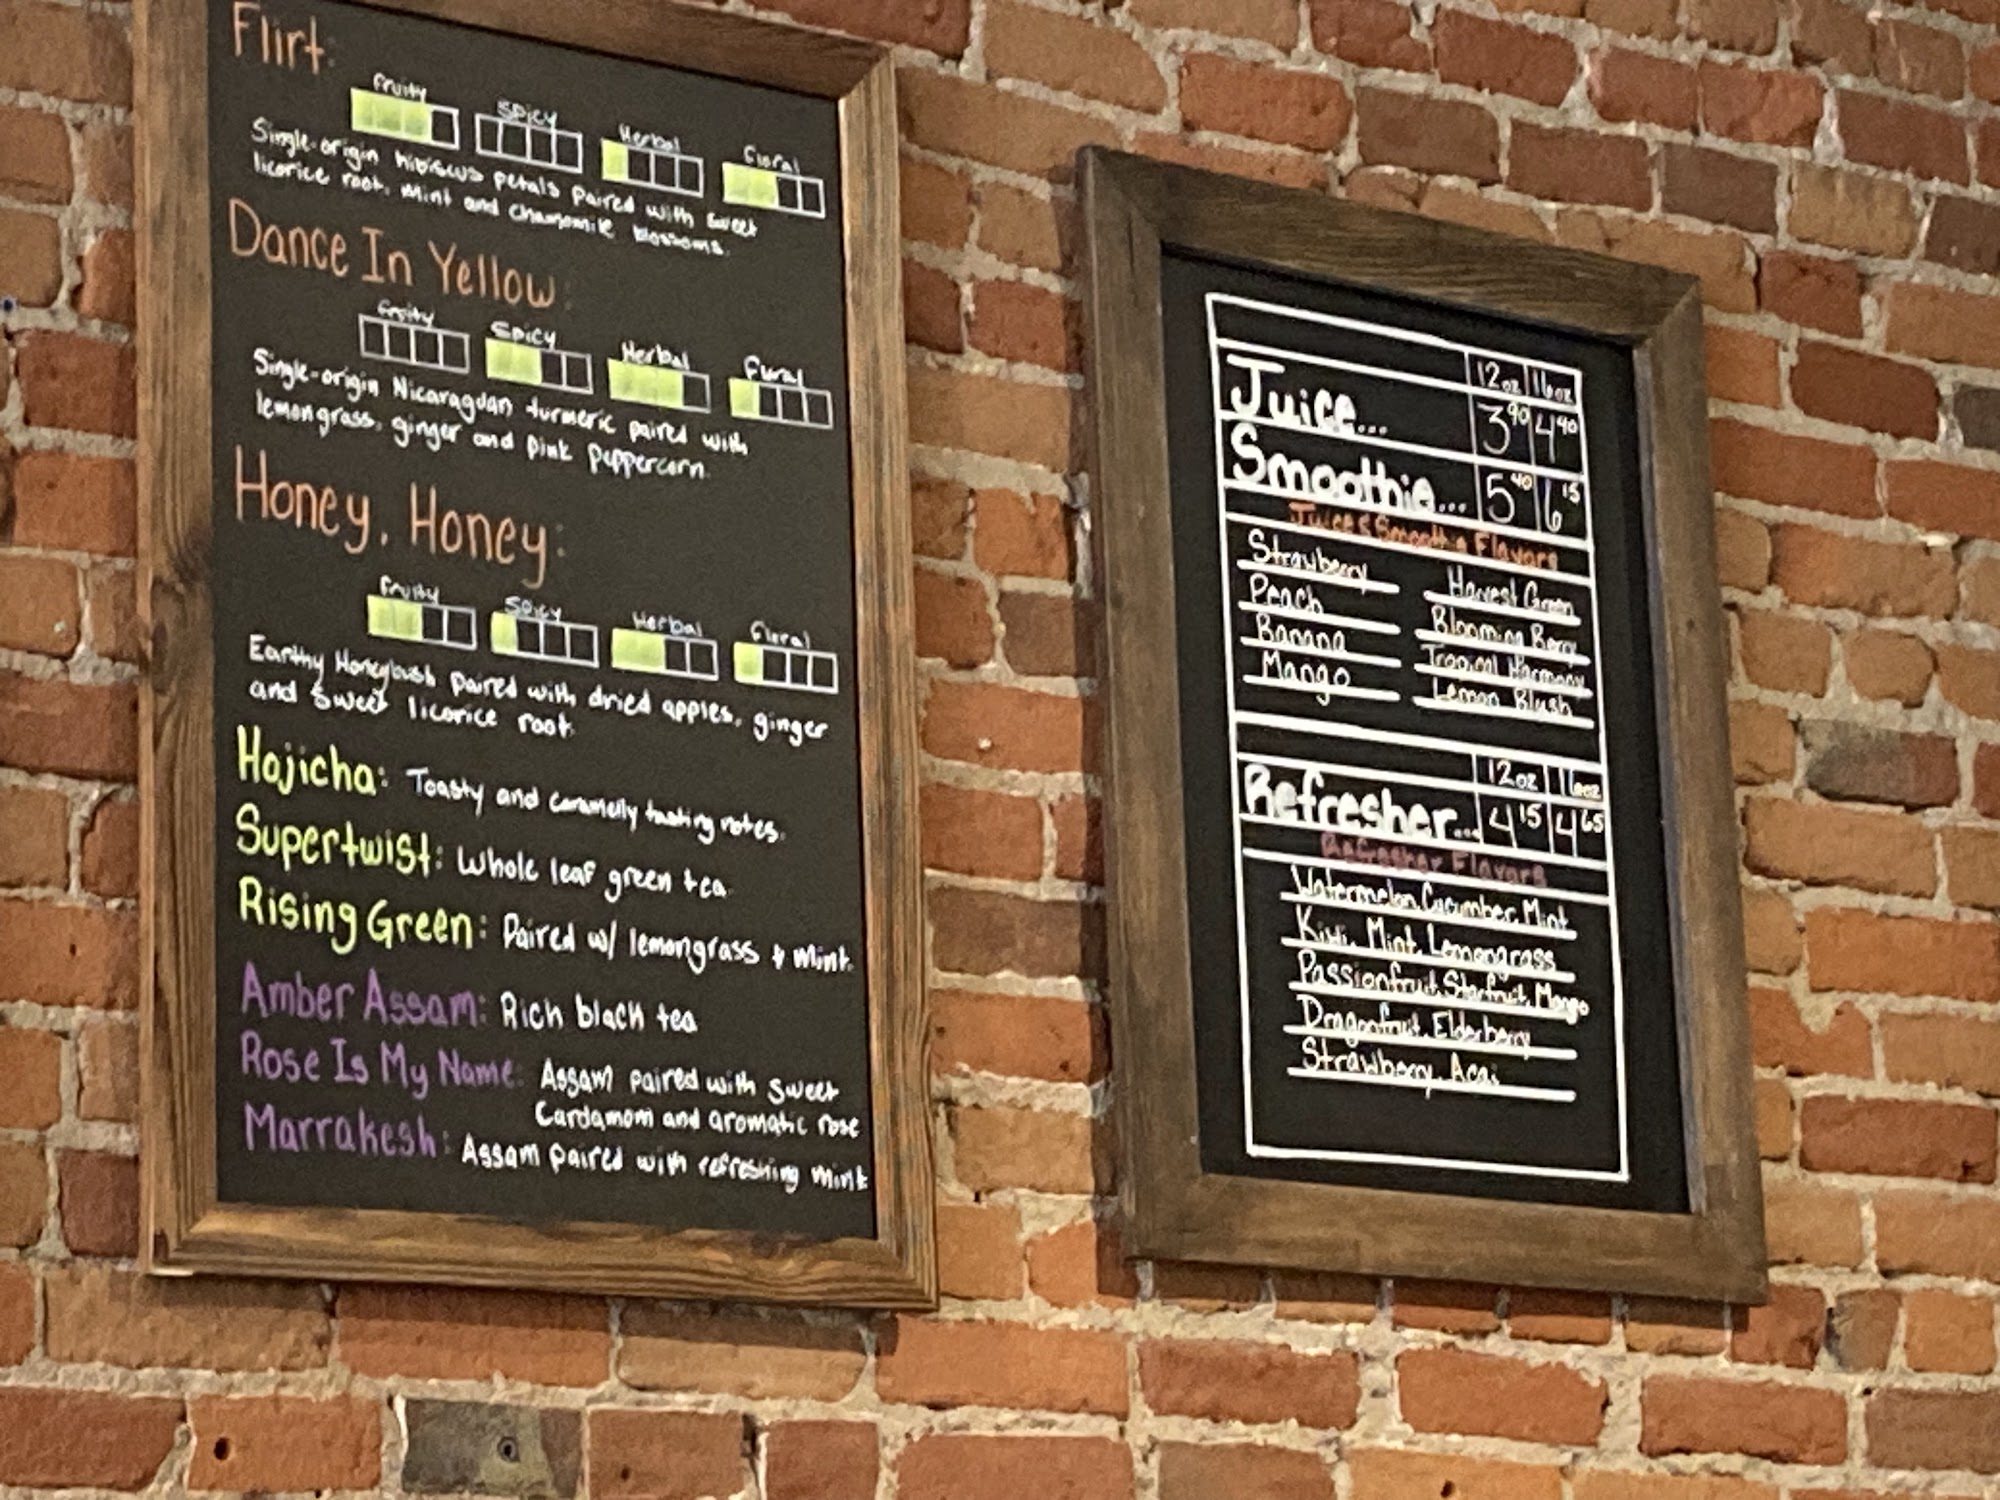 Flirt:
Fruity Spicy Herbal Floral
Single-origin hibiscus petals paired with sweet
licorice root, mint and chamomile blossoms.
Dance In Yellow:
Fruity Spicy Herbal Floral
Single-origin Nicaraguan turmeric paired with
lemongrass, ginger and pink peppercorn.
Honey, Honey:
Fruity Spicy Herbal Floral
Earthy Honeybush paired with dried apples, ginger
and sweet licorice root.
Hojicha: Toasty and caramelly tasting notes.
Supertwist: Whole leaf green tea
Rising Green: Paired w/ lemongrass & mint.
Amber Assam: Rich black tea
Rose Is My Name: Assam paired with sweet
Cardamom and aromatic rose
Marrakesh: Assam paired with refreshing mint
12oz 16oz
Juice... 3.90 4.40
Smoothie... 5.40 6.15
Juice & Smoothie Flavors
Strawberry Harvest Green
Peach Blooming Berry
Banana Tropical Harmony
Mango Lemon Blush
12oz 16oz
Refresher... 4.15 4.65
Refresher Flavors
Watermelon, Cucumber, Mint
Kiwi, Mint, Lemongrass
Passionfruit, Starfruit, Mango
Dragonfruit, Elderberry
Strawberry, Acai